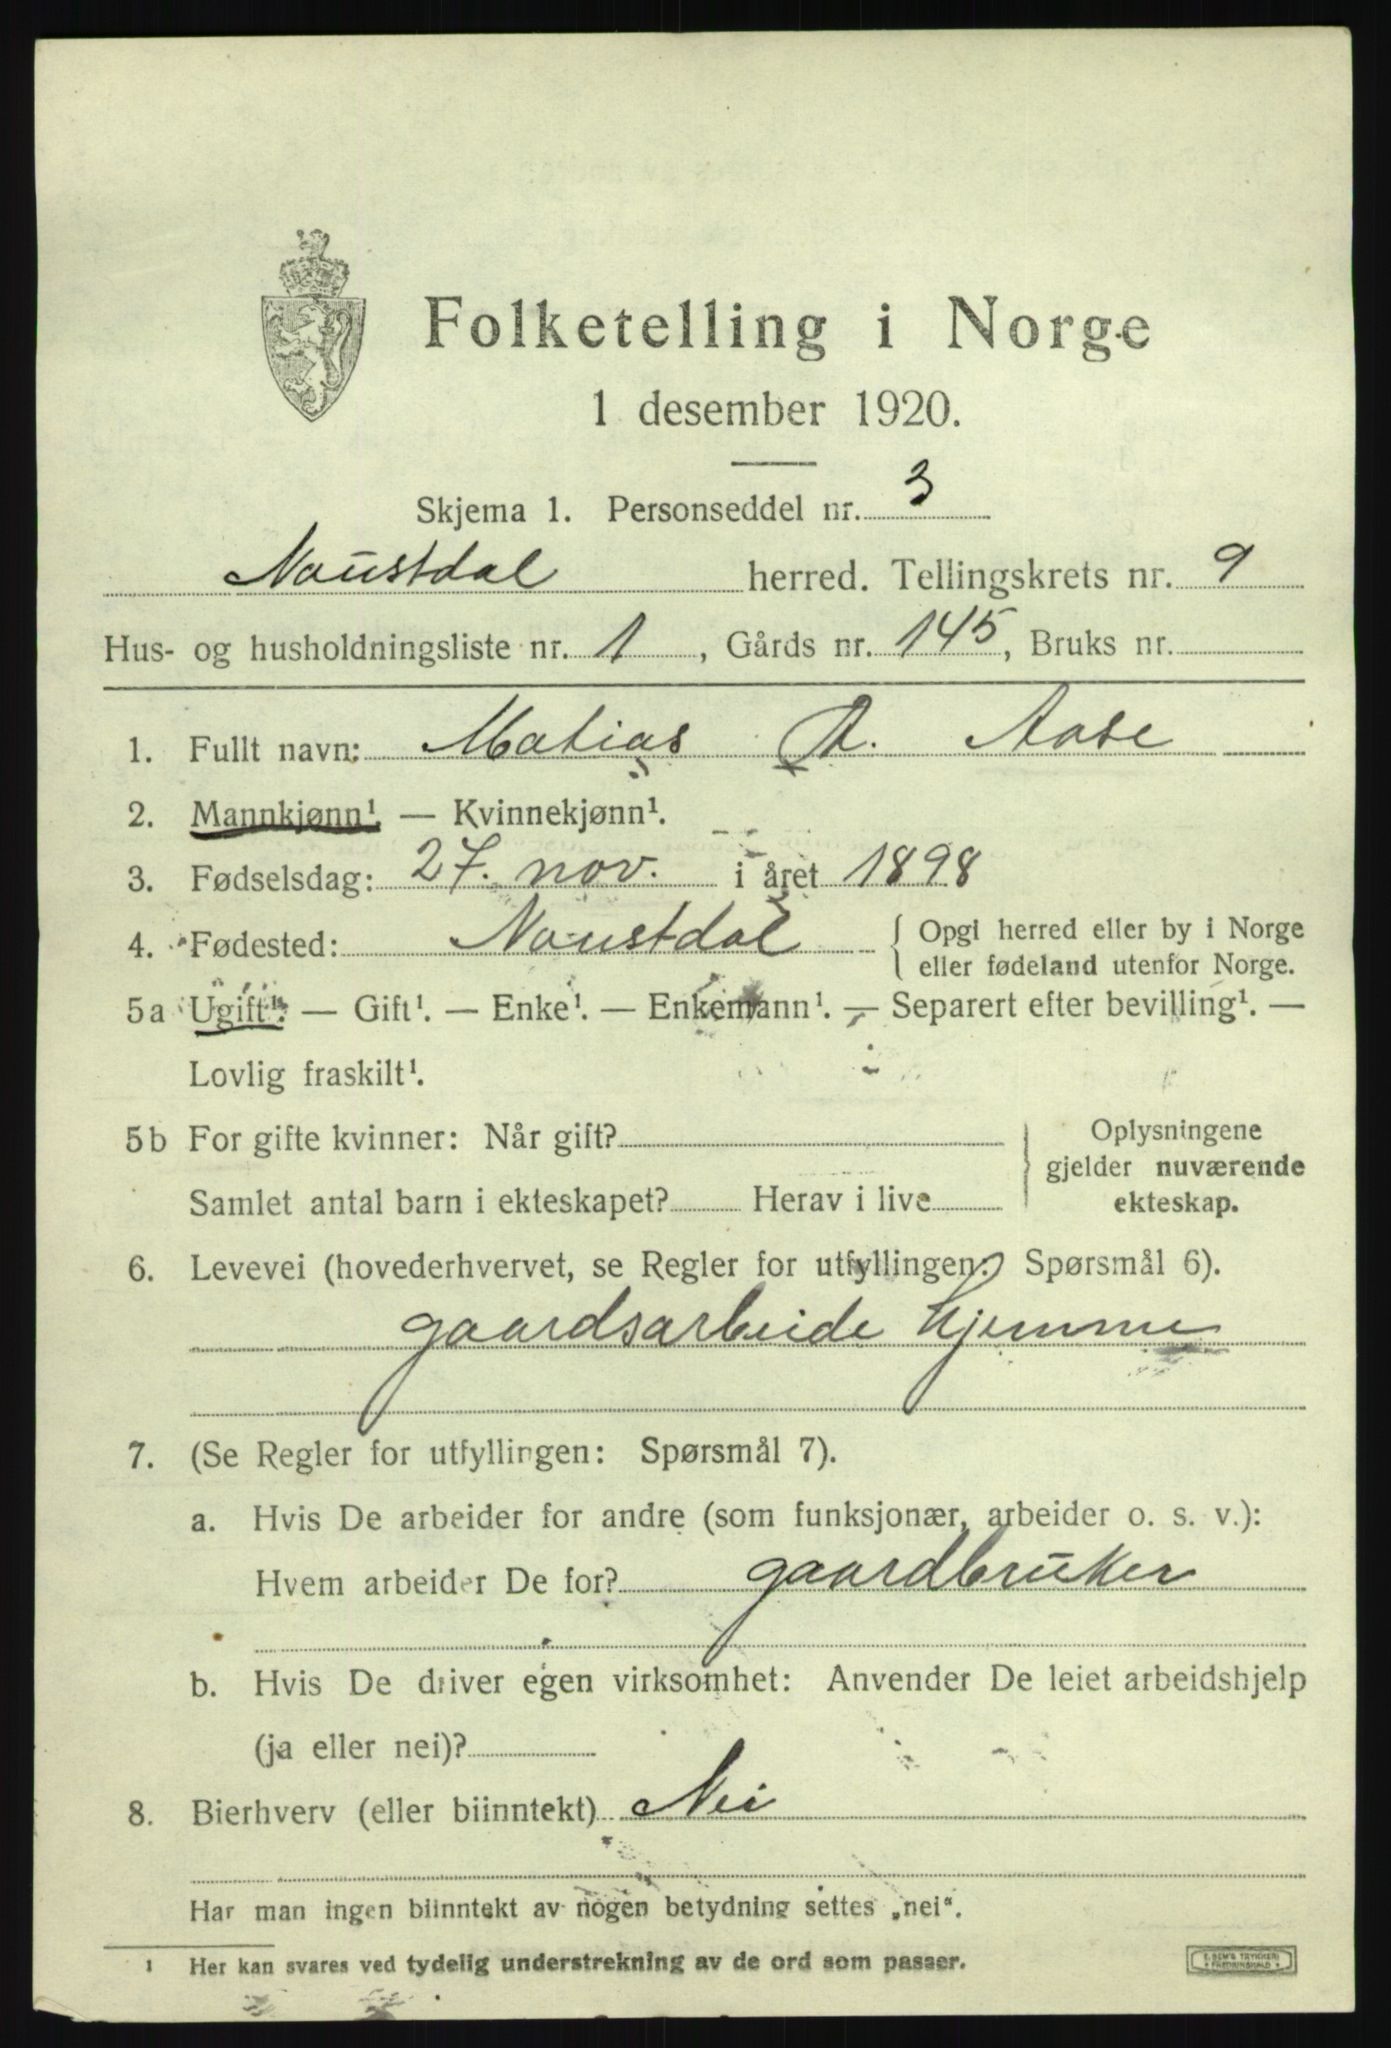 Folketelling i Norge
1 desember 1920.
Skjema 1. Personseddel nr. 3
Naustdal herred. Tellingskrets nr. 9
Hus- og husholdningsliste nr. 1, Gårds nr. 145, Bruks nr.
1. Fullt navn: Matias A. Aase
2. Mannkjønn¹. — Kvinnekjønn¹.
3. Fødselsdag: 27. nov. i året 1898
4. Fødested: Naustdal { Opgi herred eller by i Norge
eller fødeland utenfor Norge.
5a Ugift¹. — Gift¹. — Enke¹. — Enkemann¹. — Separert efter bevilling¹. —
Lovlig fraskilt¹.
5b For gifte kvinner: Når gift?
Samlet antal barn i ekteskapet? Herav i live
} Oplysningene
gjelder nuværende
ekteskap.
6. Levevei (hovederhvervet, se Regler for utfyllingen: Spørsmål 6).
gaardsarbeide hjemme
7. (Se Regler for utfyllingen: Spørsmål 7).
a. Hvis De arbeider for andre (som funksjonær, arbeider o. s. v.):
Hvem arbeider De for? gaardbruker
b. Hvis De driver egen virksomhet: Anvender De leiet arbeidshjelp
(ja eller nei)?
8. Bierhverv (eller biinntekt) Nei
Har man ingen biinntekt av nogen betydning settes „nei“.
¹ Her kan svares ved tydelig understrekning av de ord som passer.
E. SEM'S TRYKKERI
FREDRIKSHALD